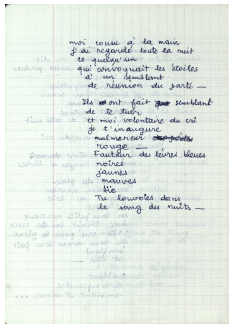 moi cousu à la main
j'ai regardé toute la nuit
ce quelqu'un
qui convoquait les étoiles
à un semblant
de réunion du parti —
Ils ont fait semblant
de te tuer
et moi volontaire du cri
je t'inaugure
malmeneur
rouge —
Fauteur des lèvres bleues
noires
jaunes
mauves
lie
Tu louvoies dans
le sang des nuits —